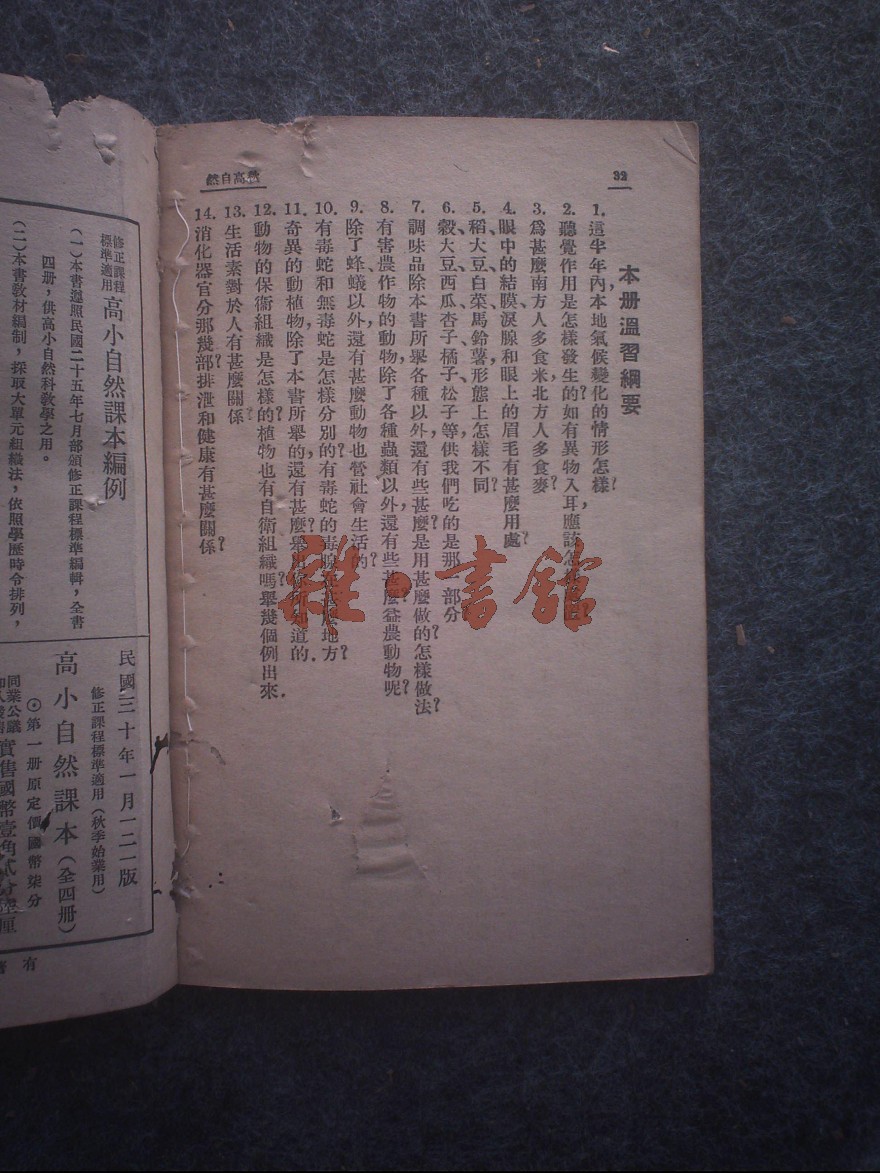 32
秋高自然
本册溫習綱要
1. 這半年內，本地氣候變化的情形怎樣？
2. 聽覺作用是怎樣發生的？如有異物入耳，應該怎
3. 爲甚麼南方人多食米，北方人多食麥？
4. 眼中的結膜、淚腺和眼上的眉毛有甚麼用處？
5. 稻、大豆、白菜、馬鈴薯，形態上怎樣不同？
6. 穀、大豆、西瓜、杏子、橘子、松子等，供我們吃的是那一部分
7. 調味品除本書所舉各種以外，還有些甚麼？是用甚麼做的？怎樣做法？
8. 有害農作物的動物，除了各種蟲類以外，還有些甚麼？益農動物呢？
9. 除了蜂、蟻以外，還有甚麼動物也營社會生活的？
10. 有毒蛇和無毒蛇是怎樣分別的？有毒蛇的毒腺在甚麼地方？
11. 奇異的動植物，除了本書所舉的，還有甚麼？舉出你所知道的.
12. 動物的保衞組織是怎樣的？植物也有自衞組織嗎？舉幾個例出來.
13. 生活素對於人有甚麼關係？
14. 消化器官分那幾部？排泄和健康有甚麼關係？
雜書館
修正課程標準適用 高小自然課本編例
（一）本書遵照民國二十五年七月部頒修正課程標準編輯，全書
四册，供高小自然科敎學之用。
（二）本書敎材編制，採取大單元組織法，依照學歷時令排列，
民國三十年一月一二一版
修正課程標準適用（秋季始業用）
高小自然課本（全四册）
⊙第一册原定價國幣柒分
同業公議
實售國幣壹角貳分
有